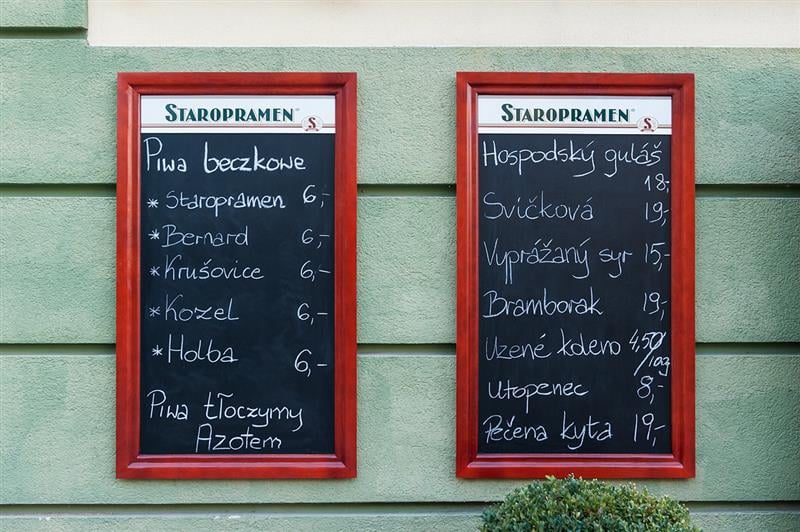 STAROPRAMEN S
Piwa beczkowe
* Staropramen 6,-
* Bernard 6,-
* Krušovice 6,-
* Kozel 6,-
* Holba 6,-
Piwa tłoczymy
Azotem
STAROPRAMEN S
Hospodský guláš
18,-
Svičková 19,-
Vyprážaný syr 15,-
Bramborak 19,-
Uzené koleno 4,50/10g
Utopenec 8,-
Pečena kyta 19,-